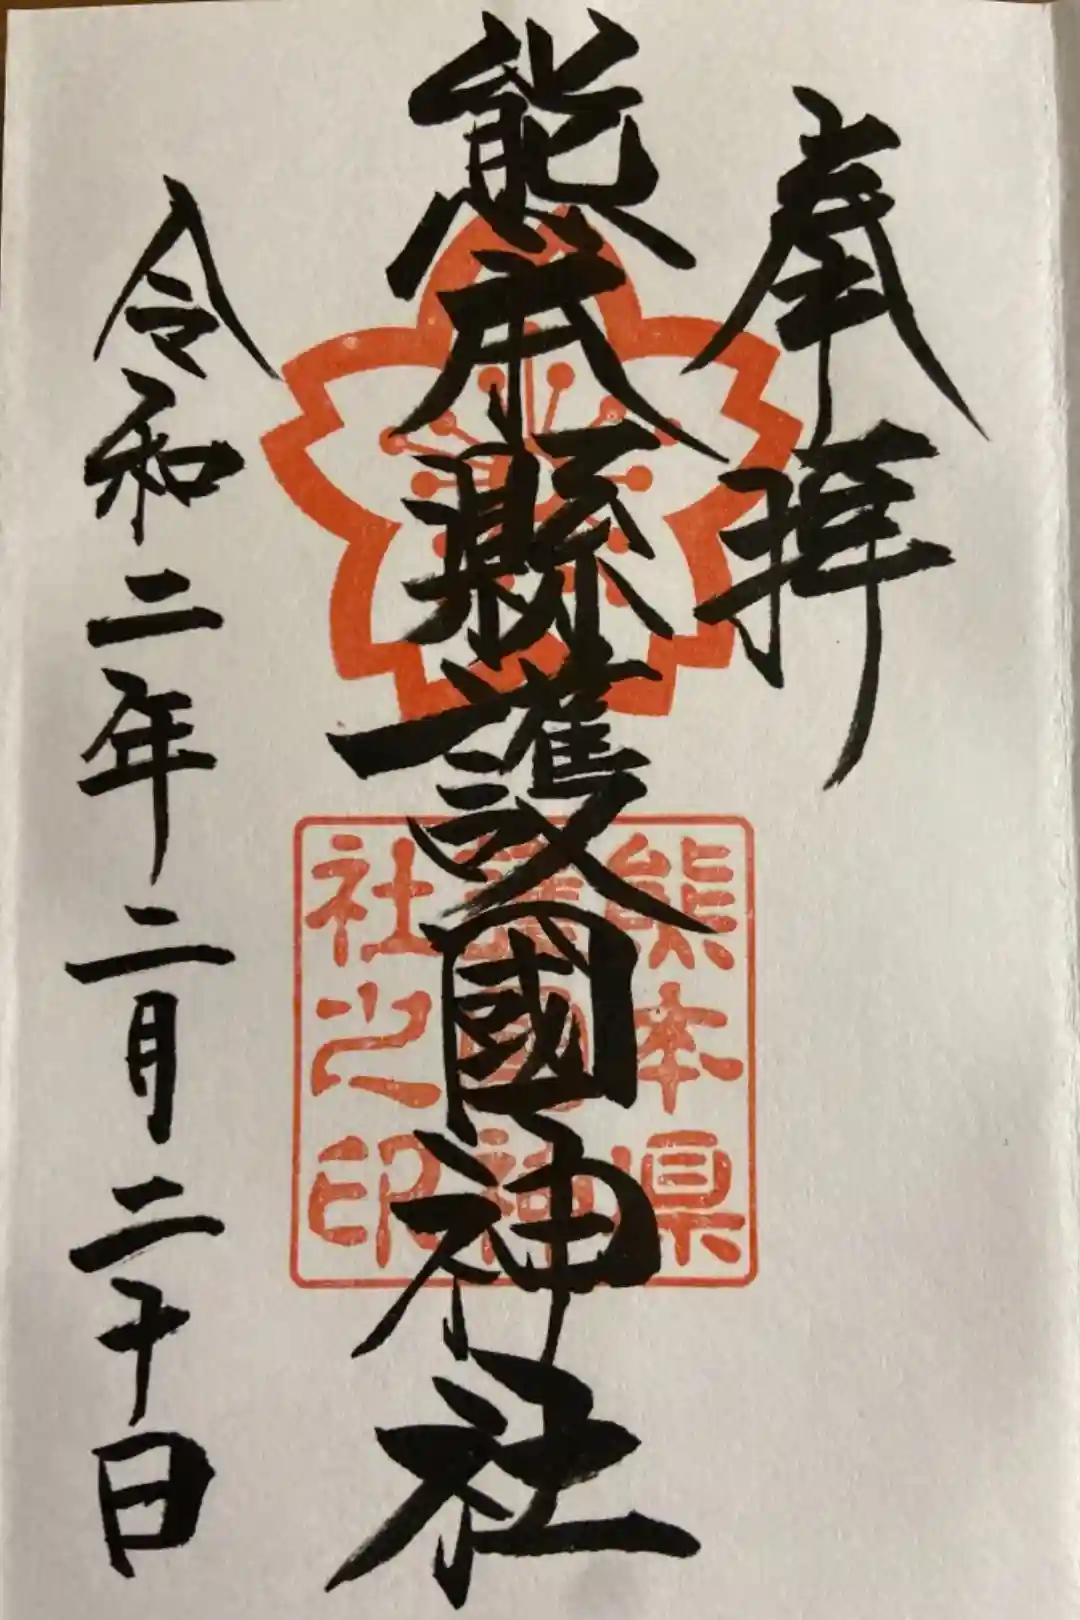 奉拝
熊本縣護國神社
熊本県
護国神
社之印
令和二年二月二十日